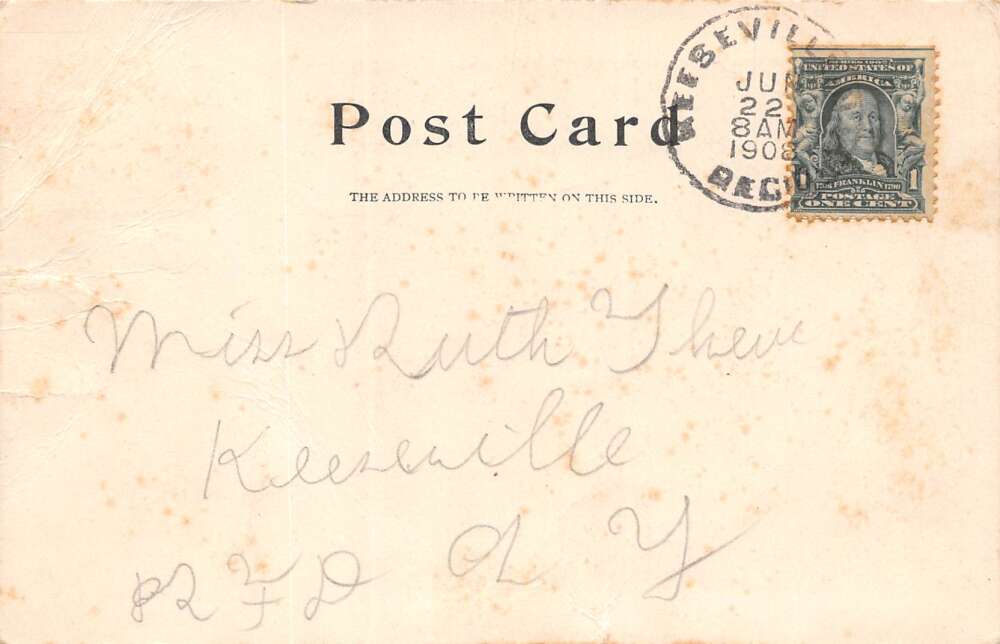 Post Card
THE ADDRESS TO BE WRITTEN ON THIS SIDE.
JUN
22
8 AM
1908
SERIES 1902
UNITED STATES OF
AMERICA
1706 FRANKLIN 1790
1
POSTAGE
ONE CENT
Miss Ruth
Keeseville
R F D N Y